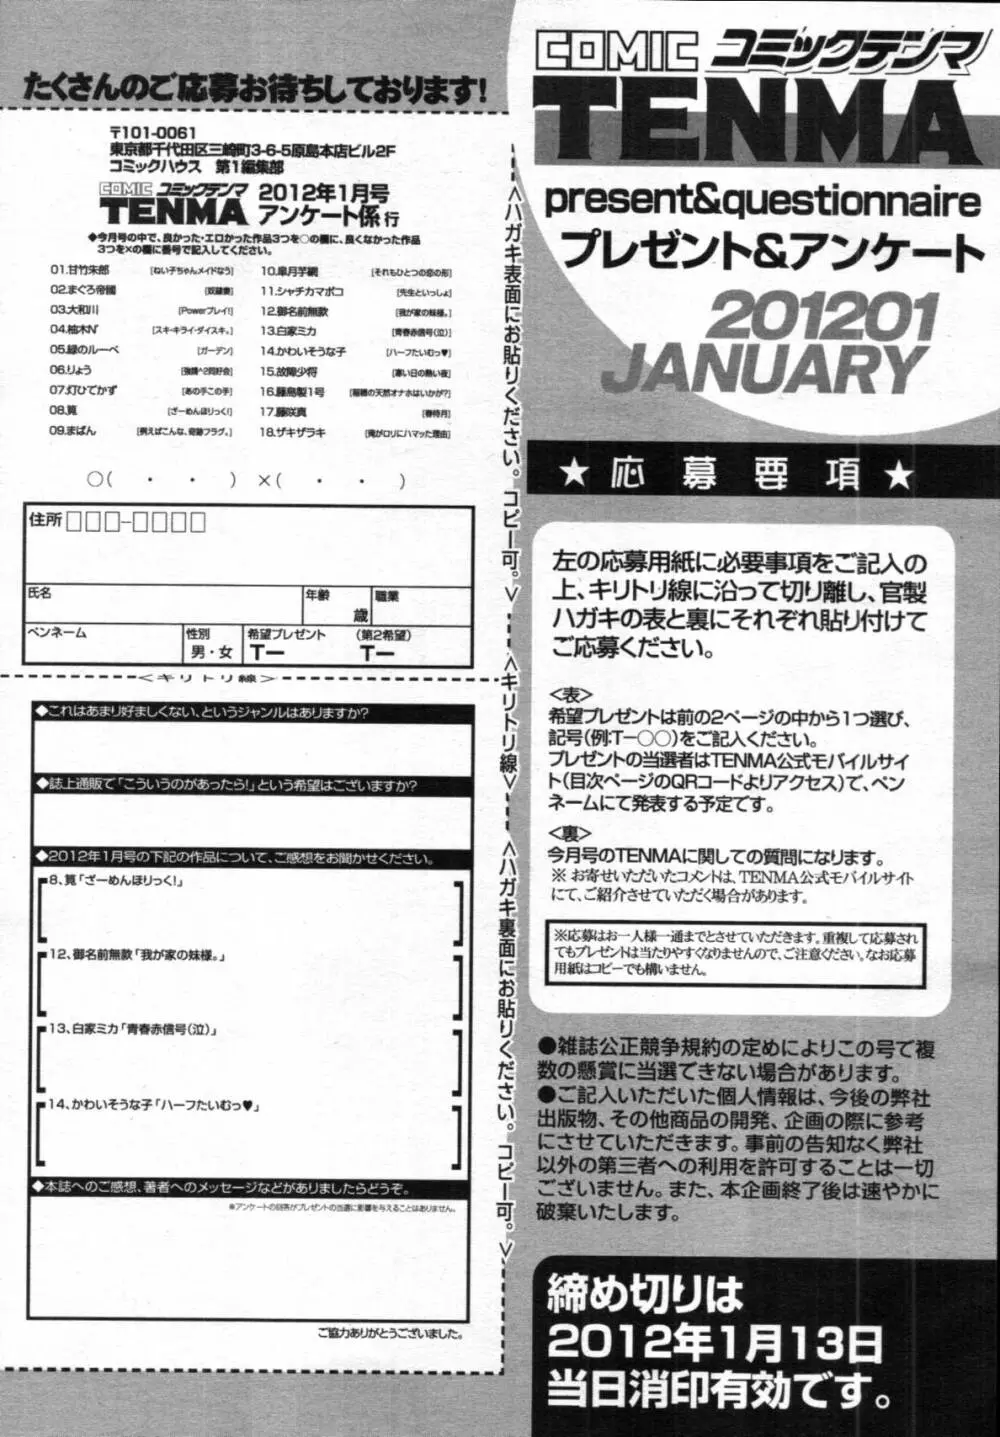 COMIC コミックテンマ
TENMA
present&questionnaire
プレゼント&アンケート
201201
JANUARY
★応募要項★
左の応募用紙に必要事項をご記入の
上、キリトリ線に沿って切り離し、官製
ハガキの表と裏にそれぞれ貼り付けて
ご応募ください。
<表>
希望プレゼントは前の2ページの中から1つ選び、
記号(例:T-○○)をご記入ください。
プレゼントの当選者はTENMA公式モバイルサイ
ト(目次ページのQRコードよりアクセス)で、ペン
ネームにて発表する予定です。
<裏>
今月号のTENMAに関しての質問になります。
※ お寄せいただいたコメントは、TENMA公式モバイルサイト
にて、ご紹介させていただく場合があります。
※応募はお一人様一通までとさせていただきます。重複して応募され
てもプレゼントは当たりやすくなりませんので、ご注意ください。なお応募
用紙はコピーでも構いません。
●雑誌公正競争規約の定めによりこの号で複
数の懸賞に当選できない場合があります。
●ご記入いただいた個人情報は、今後の弊社
出版物、その他商品の開発、企画の際に参考
にさせていただきます。事前の告知なく弊社
以外の第三者への利用を許可することは一切
ございません。また、本企画終了後は速やかに
破棄いたします。
締め切りは
2012年1月13日
当日消印有効です。
<ハガキ表面にお貼りください。コピー可。>
<キリトリ線>
<ハガキ裏面にお貼りください。コピー可。>
たくさんのご応募お待ちしております!
〒101-0061
東京都千代田区三崎町3-6-5原島本店ビル2F
コミックハウス 第1編集部
COMIC コミックテンマ
TENMA
2012年1月号
アンケート係 行
◆今月号の中で、良かった・エロかった作品3つを○の欄に、良くなかった作品
3つを×の欄に番号で記入してください。
01.甘竹朱郎 [ねい子ちゃんメイドなう]
02.まぐろ帝國 [奴隷妻]
03.大和川 [Powerプレイ!]
04.柚木N' [スキ・キライ・ダイスキ。]
05.緑のルーペ [ガーデン]
06.りょう [強請^2同好会]
07.灯ひでかず [あの手この手]
08.箟 [ざーめんほりっく!]
09.まばん [例えばこんな、奇跡フラグ。]
10.皐月芋網 [それもひとつの恋の形]
11.シャチカマボコ [先生といっしょ]
12.御名前無款 [我が家の妹様。]
13.白家ミカ [青春赤信号(泣)]
14.かわいそうな子 [ハーフたいむっ♥]
15.故障少将 [寒い日の熱い夜]
16.藤島製1号 [稲穂の天然オナホはいかが?]
17.藤咲真 [春待月]
18.ザキザラキ [俺がロリにハマッた理由]
○( ・ ・ ) ×( ・ ・ )
住所 □□□-□□□□
氏名
年齢
歳
職業
ペンネーム
性別
男・女
希望プレゼント
T-
(第2希望)
T-
<キリトリ線>
◆これはあまり好ましくない、というジャンルはありますか?
◆誌上通販で「こういうのがあったら!」という希望はございますか?
◆2012年1月号の下記の作品について、ご感想をお聞かせください。
8、箟「ざーめんほりっく!」
12、御名前無款「我が家の妹様。」
13、白家ミカ「青春赤信号(泣)」
14、かわいそうな子「ハーフたいむっ♥」
◆本誌へのご感想、著者へのメッセージなどがありましたらどうぞ。
※アンケートの回答がプレゼントの当選に影響を与えることはありません。
ご協力ありがとうございました。